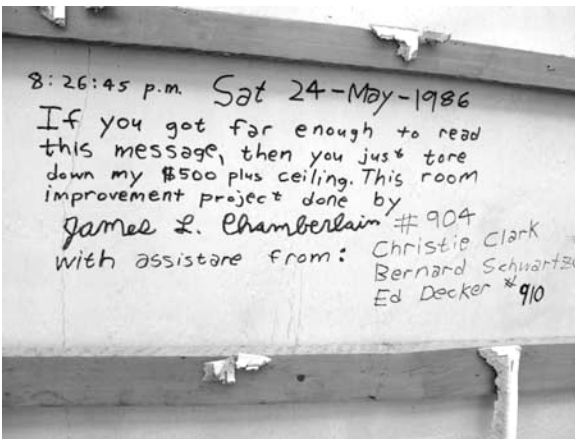 8:26:45 p.m. Sat 24-May-1986
If you got far enough to read
this message, then you just tore
down my $500 plus ceiling. This room
improvement project done by
James L. Chamberlain #904
with assistare from: Christie Clark
Bernard Schwartz
Ed Decker #910